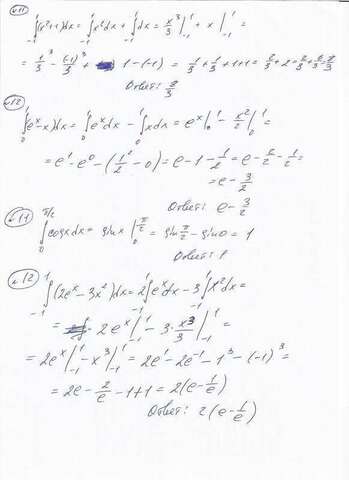 √11
∫₋₁¹(x²+1)dx = ∫₋₁¹x²dx + ∫₋₁¹dx = x³/3 |₋₁¹ + x |₋₁¹ =
= 1³/3 - (-1)³/3 + 1-(-1) = 1/3 + 1/3 + 1+1 = 2/3 + 2 = 2/3 + 6/3 = 8/3
Ответ: 8/3
√12
∫₀¹(eˣ-x)dx = ∫₀¹eˣdx - ∫₀¹xdx = eˣ |₀¹ - x²/2 |₀¹ =
= e¹-e⁰-(1²/2 - 0) = e-1-1/2 = e - 2/2 - 1/2 =
= e - 3/2
Ответ: e - 3/2
11
∫₀^π/2 cosxdx = sinx |₀^π/2 = sin π/2 - sin0 = 1
Ответ: 1
12
∫₋₁¹(2eˣ-3x²)dx = 2∫₋₁¹eˣdx - 3∫₋₁¹x²dx =
= 2eˣ |₋₁¹ - 3·x³/3 |₋₁¹ =
= 2eˣ |₋₁¹ - x³ |₋₁¹ = 2e¹-2e⁻¹-1³-(-1)³ =
= 2e - 2/e - 1+1 = 2(e - 1/e)
Ответ: 2(e - 1/e)